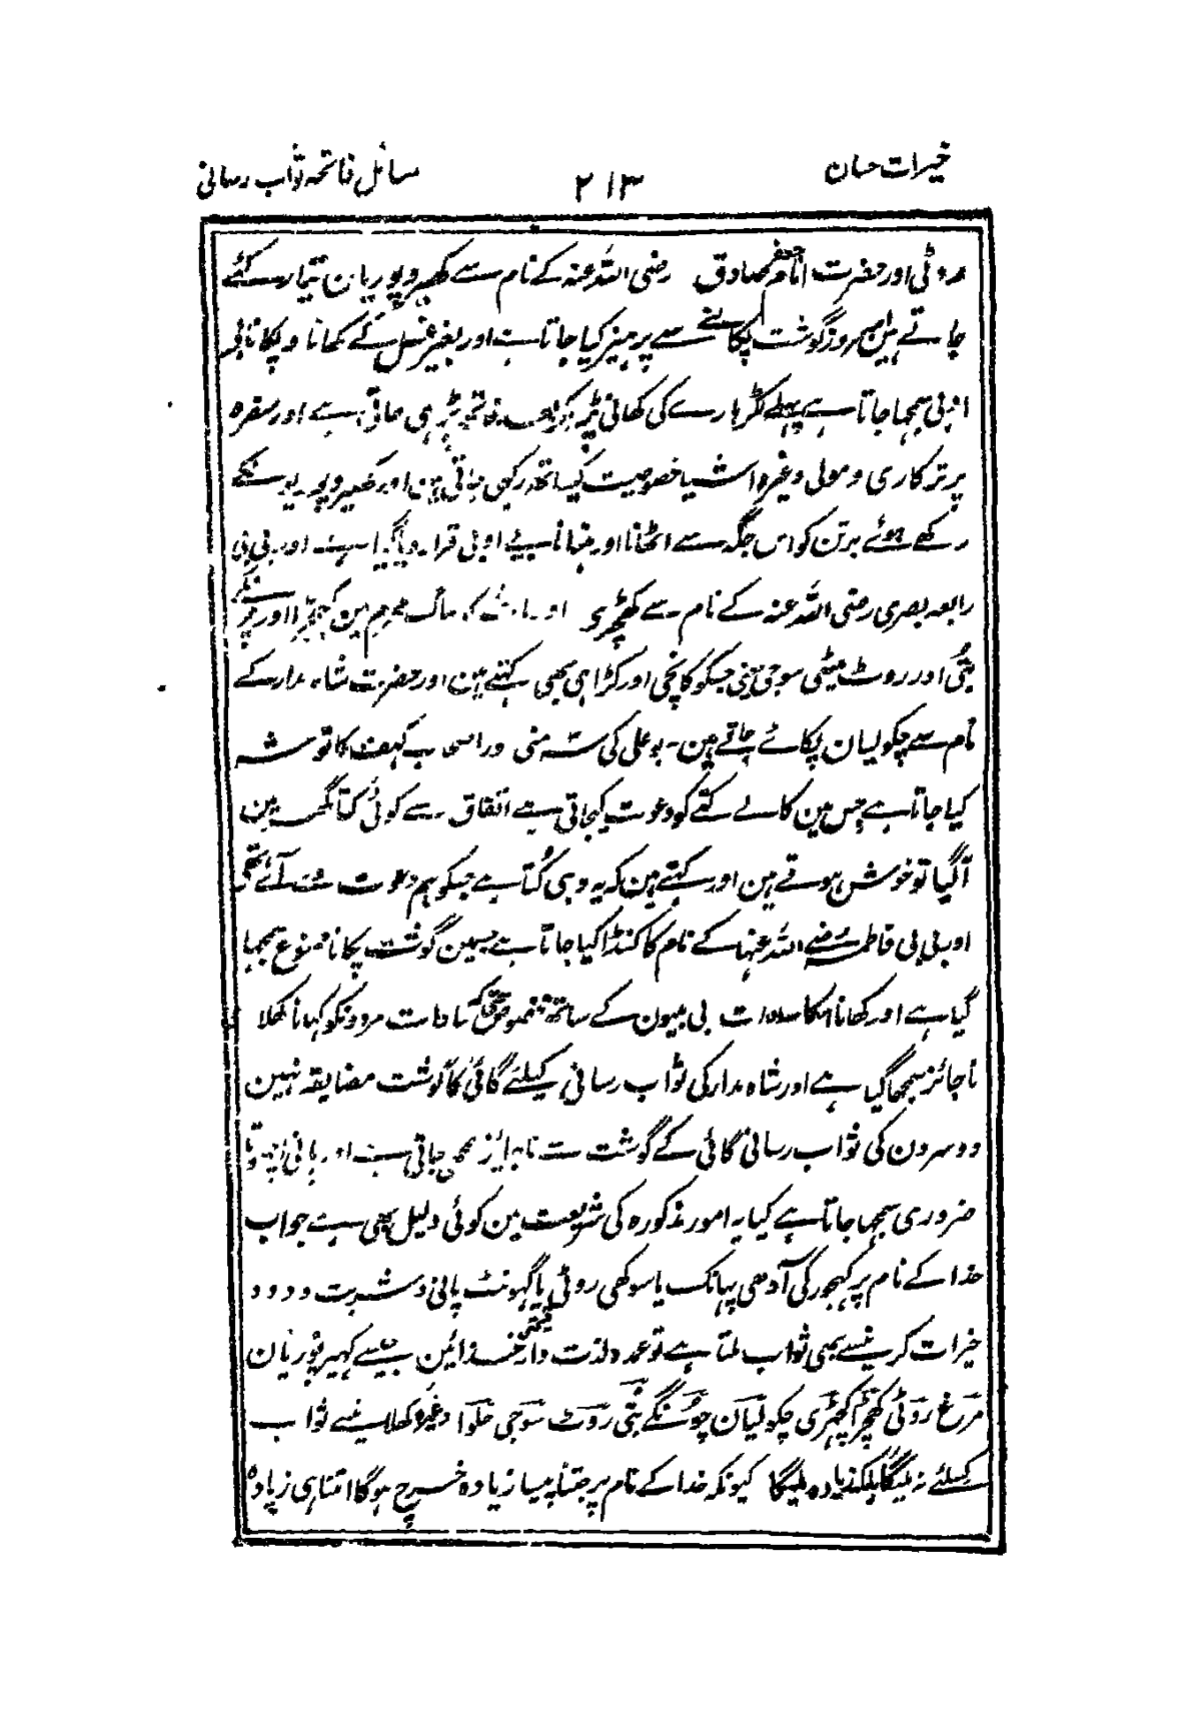 خیرات حسان ٢١٣ مسائل فاتحہ ثواب رسانی
روٹی اور حضرت امام جعفر صادق رضی اللہ عنہ کے نام سے کھیر و پوریان تیار کئے
جاتے ہین اس روز گوشت پکانے سے پرہیز کیا جاتا ہے اور بغیر غسل کے کھانا و پکانا بے
ادبی سمجھا جاتا ہے پہلے لکڑہارے کی کھانی پڑہکر بعد فاتحہ پڑہی جاتی ہے اور سفرہ
پر ترکاری و مولی وغیرہ اشیا خصوصیت کیساتھ رکھی جاتی ہین اور کھیر و پوریونکے
رکھے ہوئے برتن کو اس جگہ سے اٹھانا اور ہٹانا بے ادبی قرار دیا گیا ہے اور بی بی
رابعہ بصری رضی اللہ عنہ کے نام سے کھچڑی اور ماہ محرم مین کھچڑا اور
بتی اور روٹ میٹھی سوجی جسکو کانچی اور کڑاہی بھی کہتے ہین اور حضرت شاہ مدار کے
نام سے چکولیان پکائے جاتے ہین۔ بو علی کی سہ منی اور اصحاب کہف کا توشہ
کیا جاتا ہے جس مین کالے کتے کو دعوت کیجاتی ہے اتفاق سے کوئی کتا گھر مین
آگیا تو خوش ہوتے ہین اور کہتے ہین کہ یہ وہی کُتا ہے جسکو ہم دعوت دے آئے تھے
اور بی بی فاطمہ رضے اللہ عنہا کے نام کا کنڈا کیا جاتا ہے جسمین گوشت پکانا ممنوع سمجھا
گیا ہے اور کھانا اسکا سادات بی بیون کے ساتھ مخصوص حتی کہ سادات مردونکو کہانا کھلانا
ناجائز سمجھا گیا ہے اور شاہ مدار کی ثواب رسانی کیلئے گائی کا گوشت مضایقہ نہین
دوسرون کی ثواب رسانی گائی کے گوشت سے ناجائز سمجھی جاتی ہے اور پانی
ضروری سمجھا جاتا ہے کیا یہ امور مذکورہ کی شریعت مین کوئی دلیل بھی ہے جواب
خدا کے نام پر کہجور کی آدھی پہانک یا سوکھی روٹی یا گہونٹ پانی و شربت و دود
خیرات کرنیسے بھی ثواب ملتا ہے تو عمدہ و لذت دار قیمتی غذائین جیسے کہیر پوریان
مرغ روٹی کھچڑا کھچڑی چکولیان چونگے بتی روٹ سوجی حلوا وغیرہ کھلانیسے ثواب
کسلئے نہ ملیگا بلکہ زیادہ ملیگا کیونکہ خدا کے نام پر جتنا پیسا زیادہ خرچ ہوگا اتنا ہی زیادہ